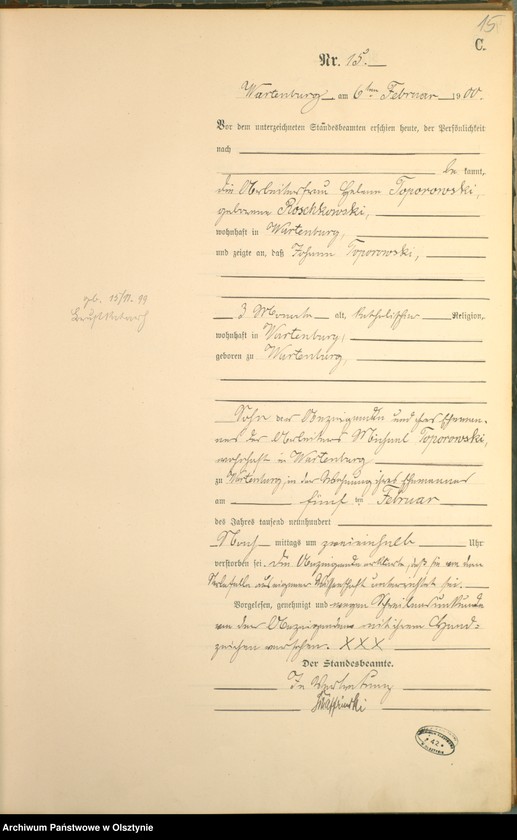 15
C.
Nr. 15.
Wartenburg am 6ten Februar 1900.
Vor dem unterzeichneten Standesbeamten erschien heute, der Persönlichkeit
nach
be kannt,
die Arbeiterfrau Helene Toporowski,
geborene Roschkowski,
wohnhaft in Wartenburg,
und zeigte an, daß Johann Toporowski,
3 Monate alt, katholischer Religion,
wohnhaft in Wartenburg,
geboren zu Wartenburg,
geb. 15/11. 99
Sohn der Anzeigenden und ihres Eheman-
nes des Arbeiters Michael Toporowski,
wohnhaft in Wartenburg
zu Wartenburg, in der Wohnung ihres Ehemannes
am fünf ten Februar
des Jahres tausend neunhundert
Nach mittags um zweieinhalb Uhr
verstorben sei. Die Anzeigende erklärte, daß sie von dem
Sterbefalle aus eigener Wissenschaft unterrichtet sei.
Vorgelesen, genehmigt und wegen Schreibensunkunde
von der Anzeigenden mit ihrem Hand-
zeichen versehen. XXX
Der Standesbeamte.
In Vertretung
42
Archiwum Państwowe w Olsztynie